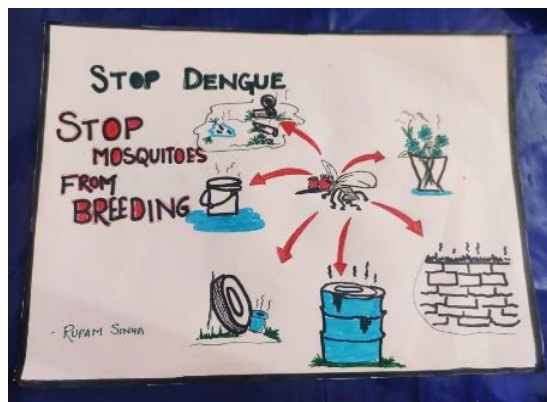 STOP DENGUE
STOP
MOSQUITOES
FROM
BREEDING
- RUPAM SINHA